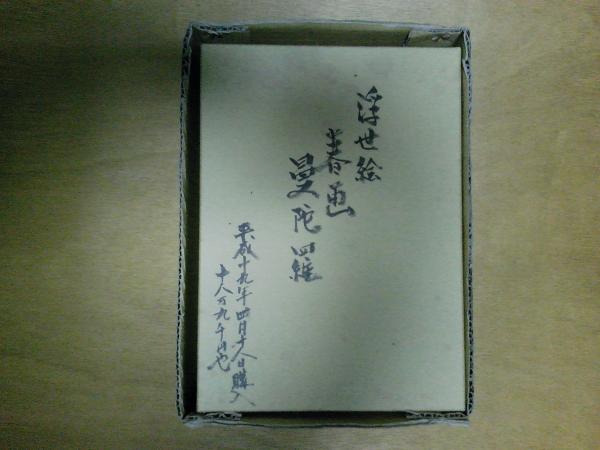 浮世絵
春画
曼陀羅
平成十九年四月十八日購入
十八万九千円也